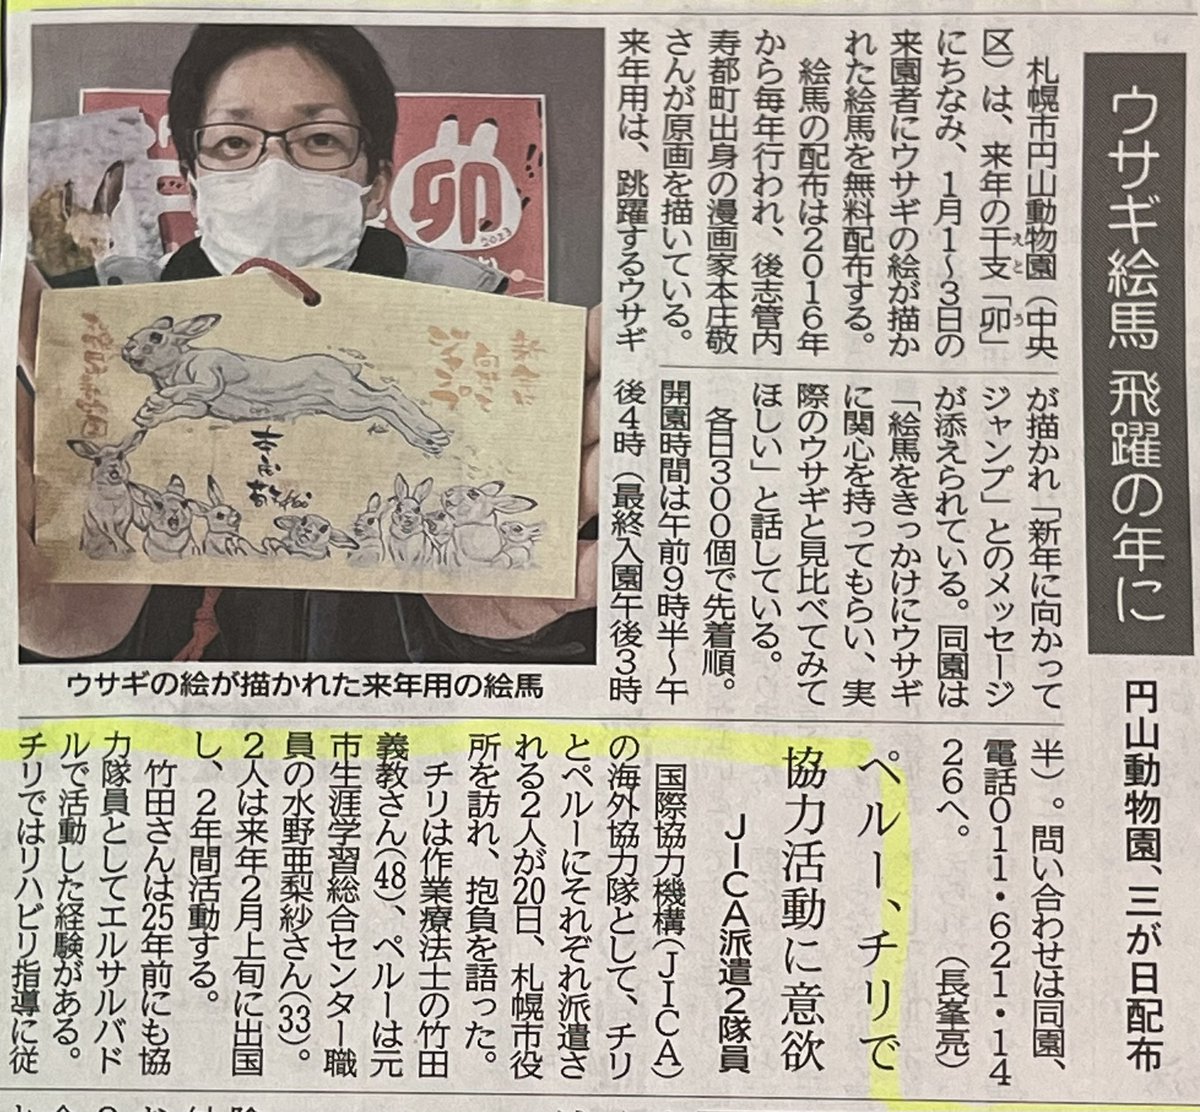 ウサギ絵馬 飛躍の年に
円山動物園、三が日配布
札幌市円山動物園（中央
区）は、来年の干支「卯」
えと
う
にちなみ、1月1〜3日の
来園者にウサギの絵が描か
れた絵馬を無料配布する。
絵馬の配布は2016年
から毎年行われ、後志管内
寿都町出身の漫画家本庄敬
さんが原画を描いている。
来年用は、跳躍するウサギ
が描かれ「新年に向かって
ジャンプ」とのメッセージ
が添えられている。同園は
「絵馬をきっかけにウサギ
に関心を持ってもらい、実
際のウサギと見比べてみて
ほしい」と話している。
各日300個で先着順。
開園時間は午前9時半〜午
後4時（最終入園午後3時
半）。問い合わせは同園、
電話011・621・14
26へ。（長峯亮）
卯
2023
ウサギの絵が描かれた来年用の絵馬
ペルー、チリで
協力活動に意欲
JICA派遣2隊員
国際協力機構（JICA）
の海外協力隊として、チリ
とペルーにそれぞれ派遣さ
れる2人が20日、札幌市役
所を訪れ、抱負を語った。
チリは作業療法士の竹田
義教さん(48)、ペルーは元
市生涯学習総合センター職
員の水野亜梨紗さん(33)。
2人は来年2月上旬に出国
し、2年間活動する。
竹田さんは25年前にも協
力隊員としてエルサルバド
ルで活動した経験がある。
チリではリハビリ指導に従